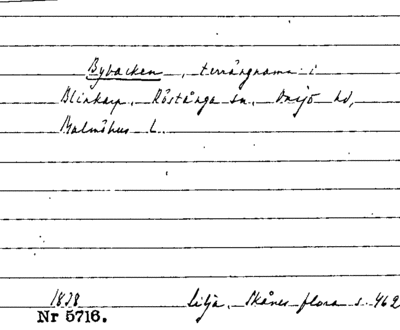 Bybacken, terrängnamn i
Blinkarp, Röstånga sn., Onsjö hd,
Malmöhus l.
1838 Lilja, Skånes flora s. 462
Nr 5716.